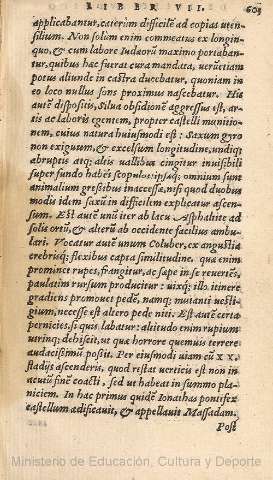 LIBER VII. 603
applicabantur, cæterùm difficilè ad copias uten-
silium. Non solùm enim commeatus ex longin-
quo, & cum labore Iudæorũ maximo portaban-
tur, quibus hæc fuerat cura mandata, verùetiam
potus aliunde in castra ducebatur, quoniam in
eo loco nullus fons proximus nascebatur. His
autẽ dispositis, Silua obsidionẽ aggressus est, ar-
tis ac laboris egentem, propter castelli munitio-
nem, cuius natura huiusmodi est: Saxum gyro
non exiguum, & excelsum longitudine, undiq;
abrupteis atq; altis vallibus cingitur inuisibili
super fundo habẽs scopulos ipsisq; omnium sunt
animalium gressibus inaccessæ, nisi quòd duobus
modis idem saxũ in difficilem explicatur ascen-
sum. Est autẽ unũ iter ab lacu Asphaltite ad
solis ortũ, & alterũ ab occidente facilius ambu-
lari. Vocatur autẽ unum Coluber, ex angustia
crebrisq; flexibus capta similitudine. quà enim
prominet rupes, frangitur, ac sæpe in se reuertẽs,
paulatim rursum producitur: uixq; illo itinere
gradiens promouet pedẽ, namq; mutanti uesti-
gium, necesse est altero pede niti. Est autẽ certa
pernicies, si quis labatur: altitudo enim rupium
utrinq; dehiscit, ut qua horrore quemuis terrere
audacissimũ possit. Per eiusmodi uiam cũ x x.
stadijs ascenderis, quod restat verticis est non in
acuũ finẽ coacti, sed ut habeat in summo pla-
niciem. In hac primus quidẽ Ionathas pontifex
castellum ædificauit, & appellauit Massadam.
Post
Ministerio de Educación, Cultura y Deporte